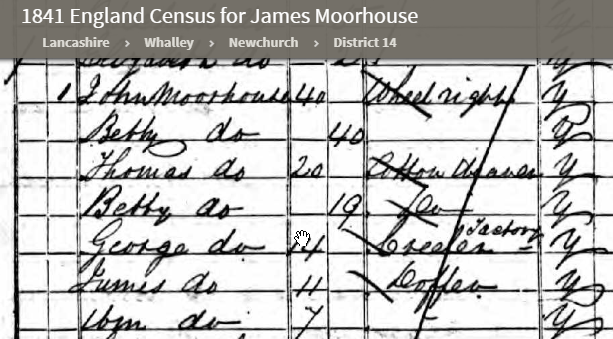 1841 England Census for James Moorhouse
Lancashire > Whalley > Newchurch > District 14
1 John Moorhouse 40 Wheel right Y
Betty do 40 Y
Thomas do 20 Cotton Weaver Y
Betty do 19 Do Y
George do 14 Factory Y
James do 11 Doffer Y
Wm do 7 Y